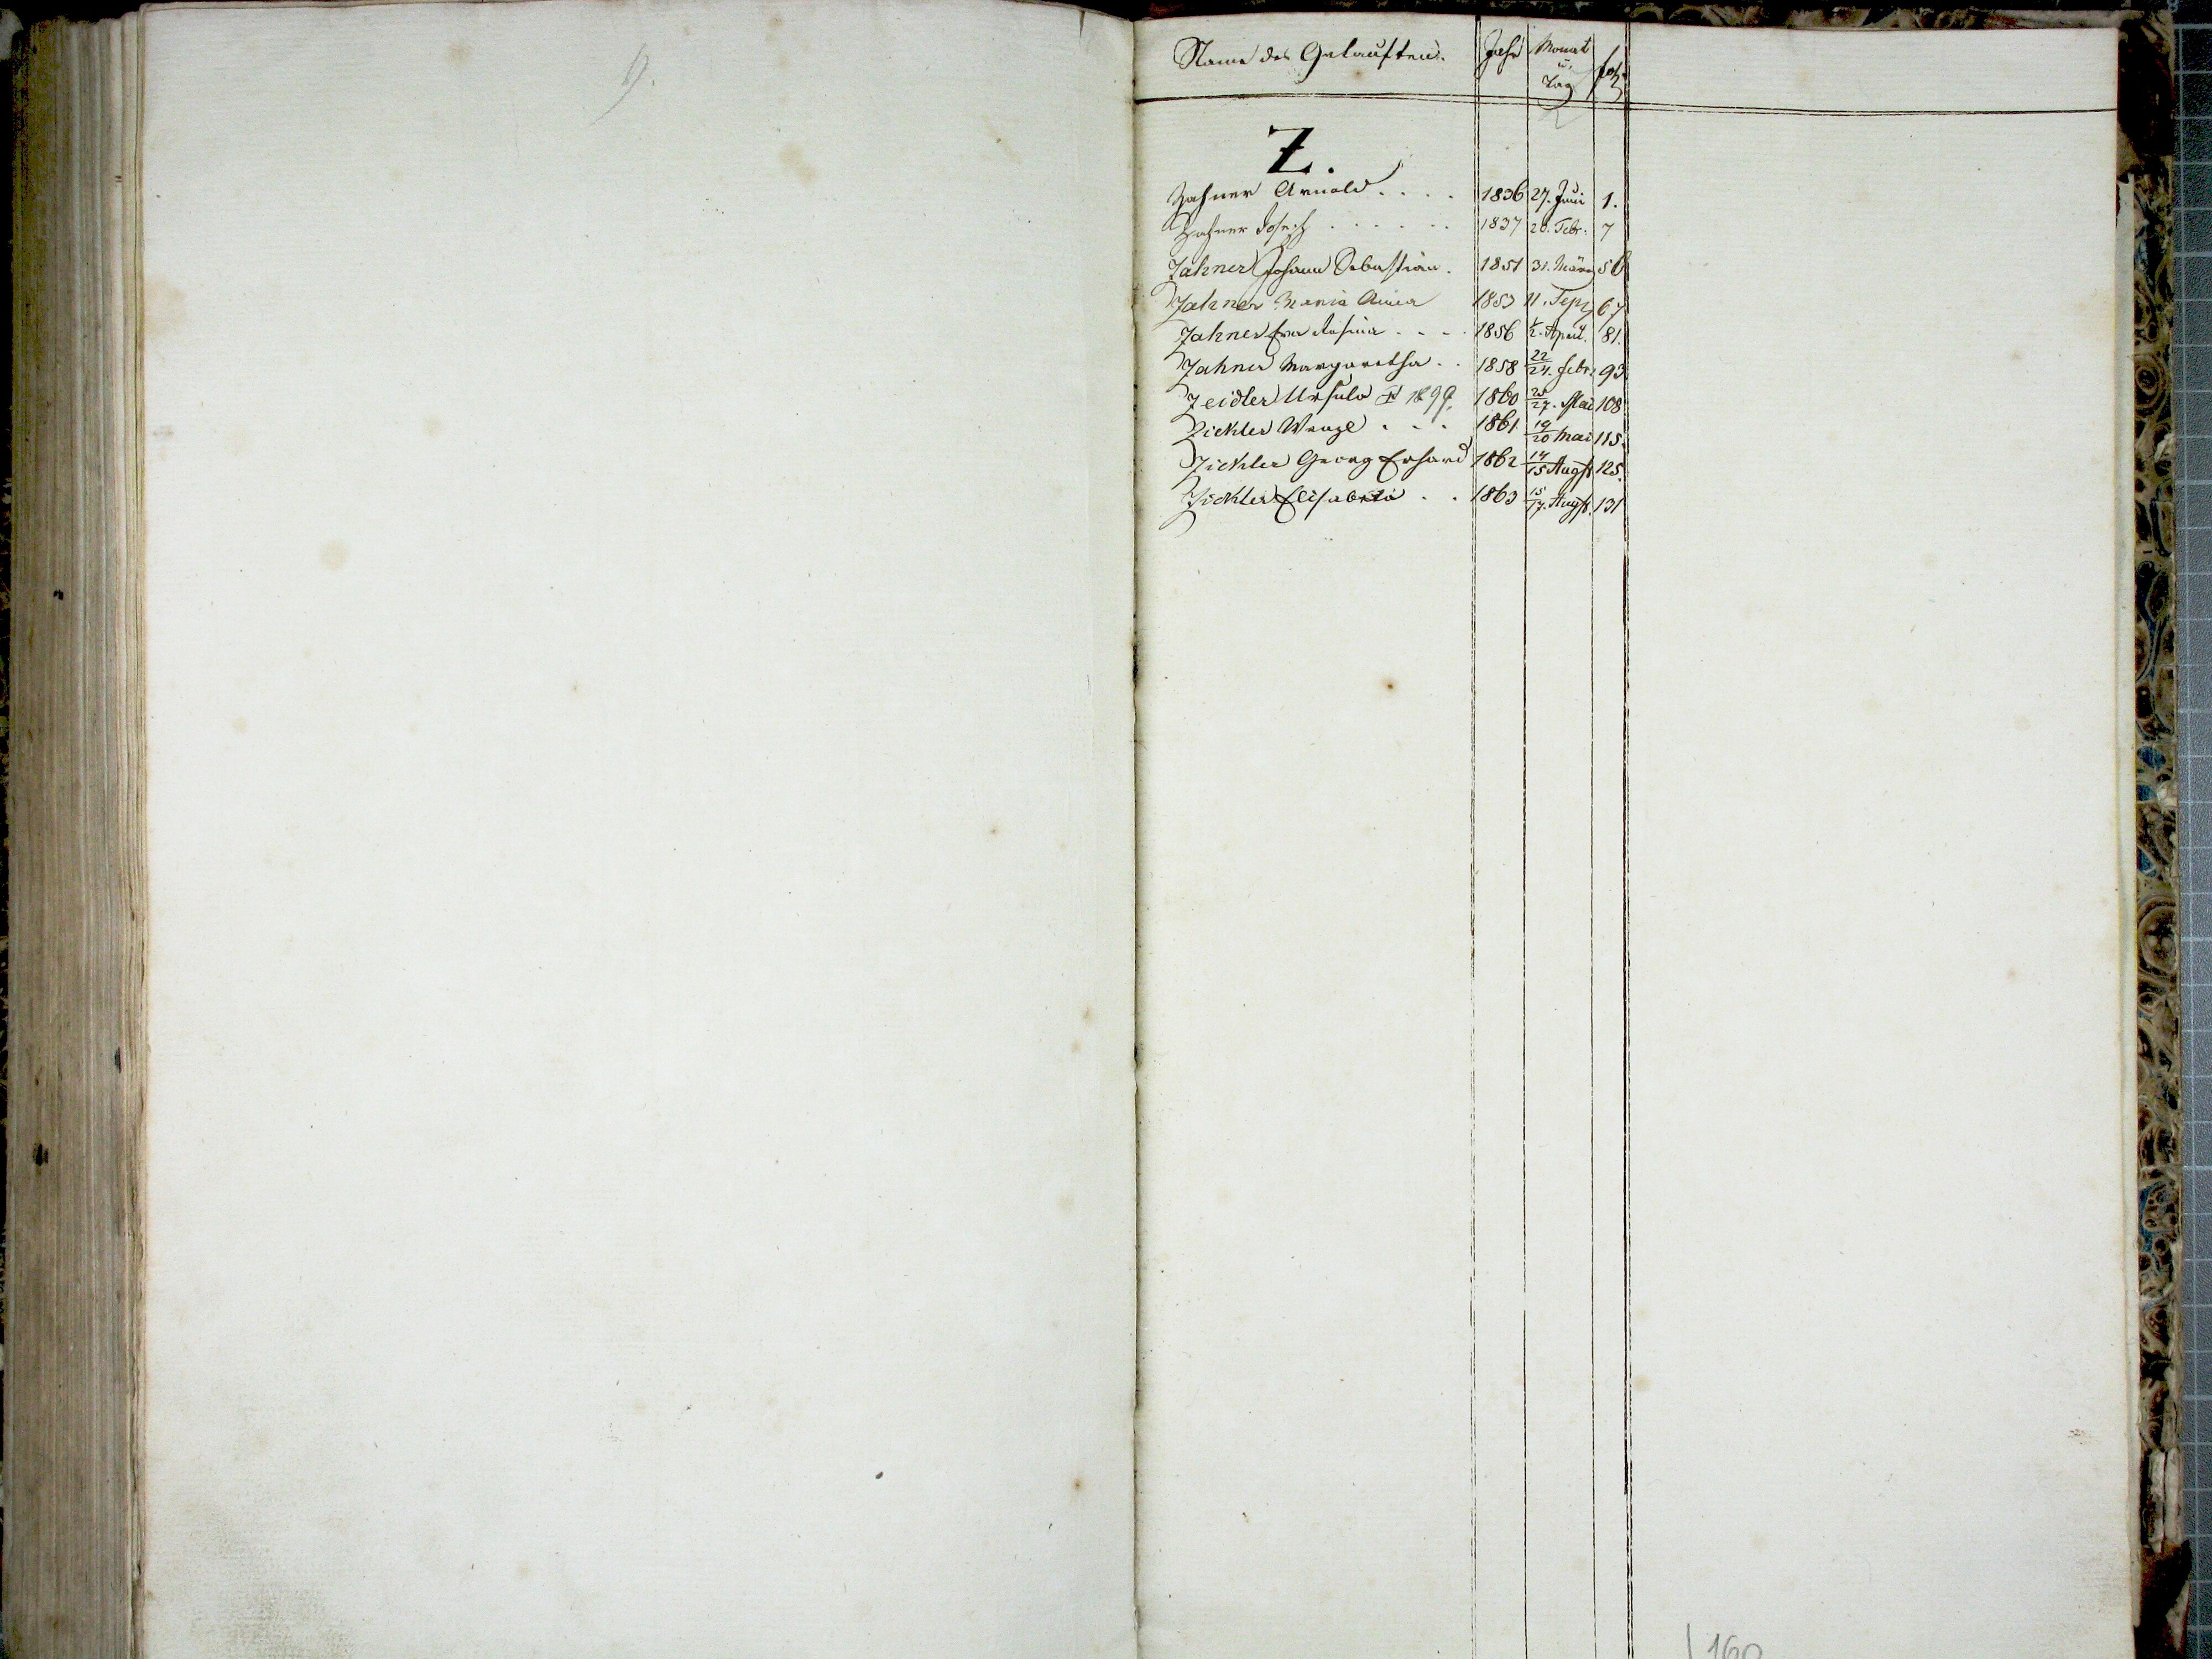 y.
Name des Getauften. Jahr Monat u. Tag fol.
Z.
Zahner Arnold . . . . 1836 27. Juni 1.
Zahner Joseph . . . . . . 1837 20. Febr. 7
Zahner Johann Sebastian. 1851 31. März 56
Zahner Maria Anna 1853 11. Sept. 67
Zahner Eva Rosina . . . . 1856 1/2. April. 81.
Zahner Margaretha . . 1858 22/24. Febr. 93
Zeidler Ursula † 1899. 1860 25/27. Mai 108
Zickler Wenzl . . . 1861 19/20 Mai 115.
Zickler Georg Erhard 1862 14/15 Augst 125.
Zickler Elisabetha . . 1863 15/17. Augst. 131
160